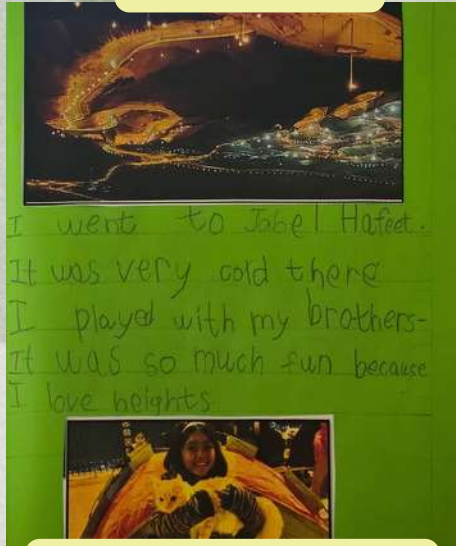 I went to Jabel Hafeet.
It was very cold there
I played with my brothers-
It was so much fun because
I love heights